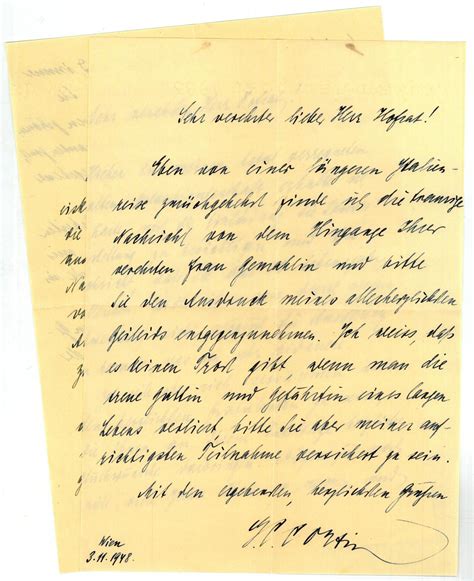 Sehr verehrter lieber Herr Hofrat!
Eben von einer längeren Italien-
reise zurückgekehrt finde ich die traurige
Nachricht von dem Hingange Ihrer
verehrten Frau Gemahlin und bitte
Sie den Ausdruck meines allerherzlichsten
Beileids entgegenzunehmen. Ich weiss, daß
es keinen Trost gibt, wenn man die
treue Gattin und Gefährtin eines langen
Lebens verliert bitte Sie aber meiner auf-
richtigsten Teilnahme versichert zu sein.
Mit den ergebenden, herzlichsten Grüßen
Wien
3.11.1948.